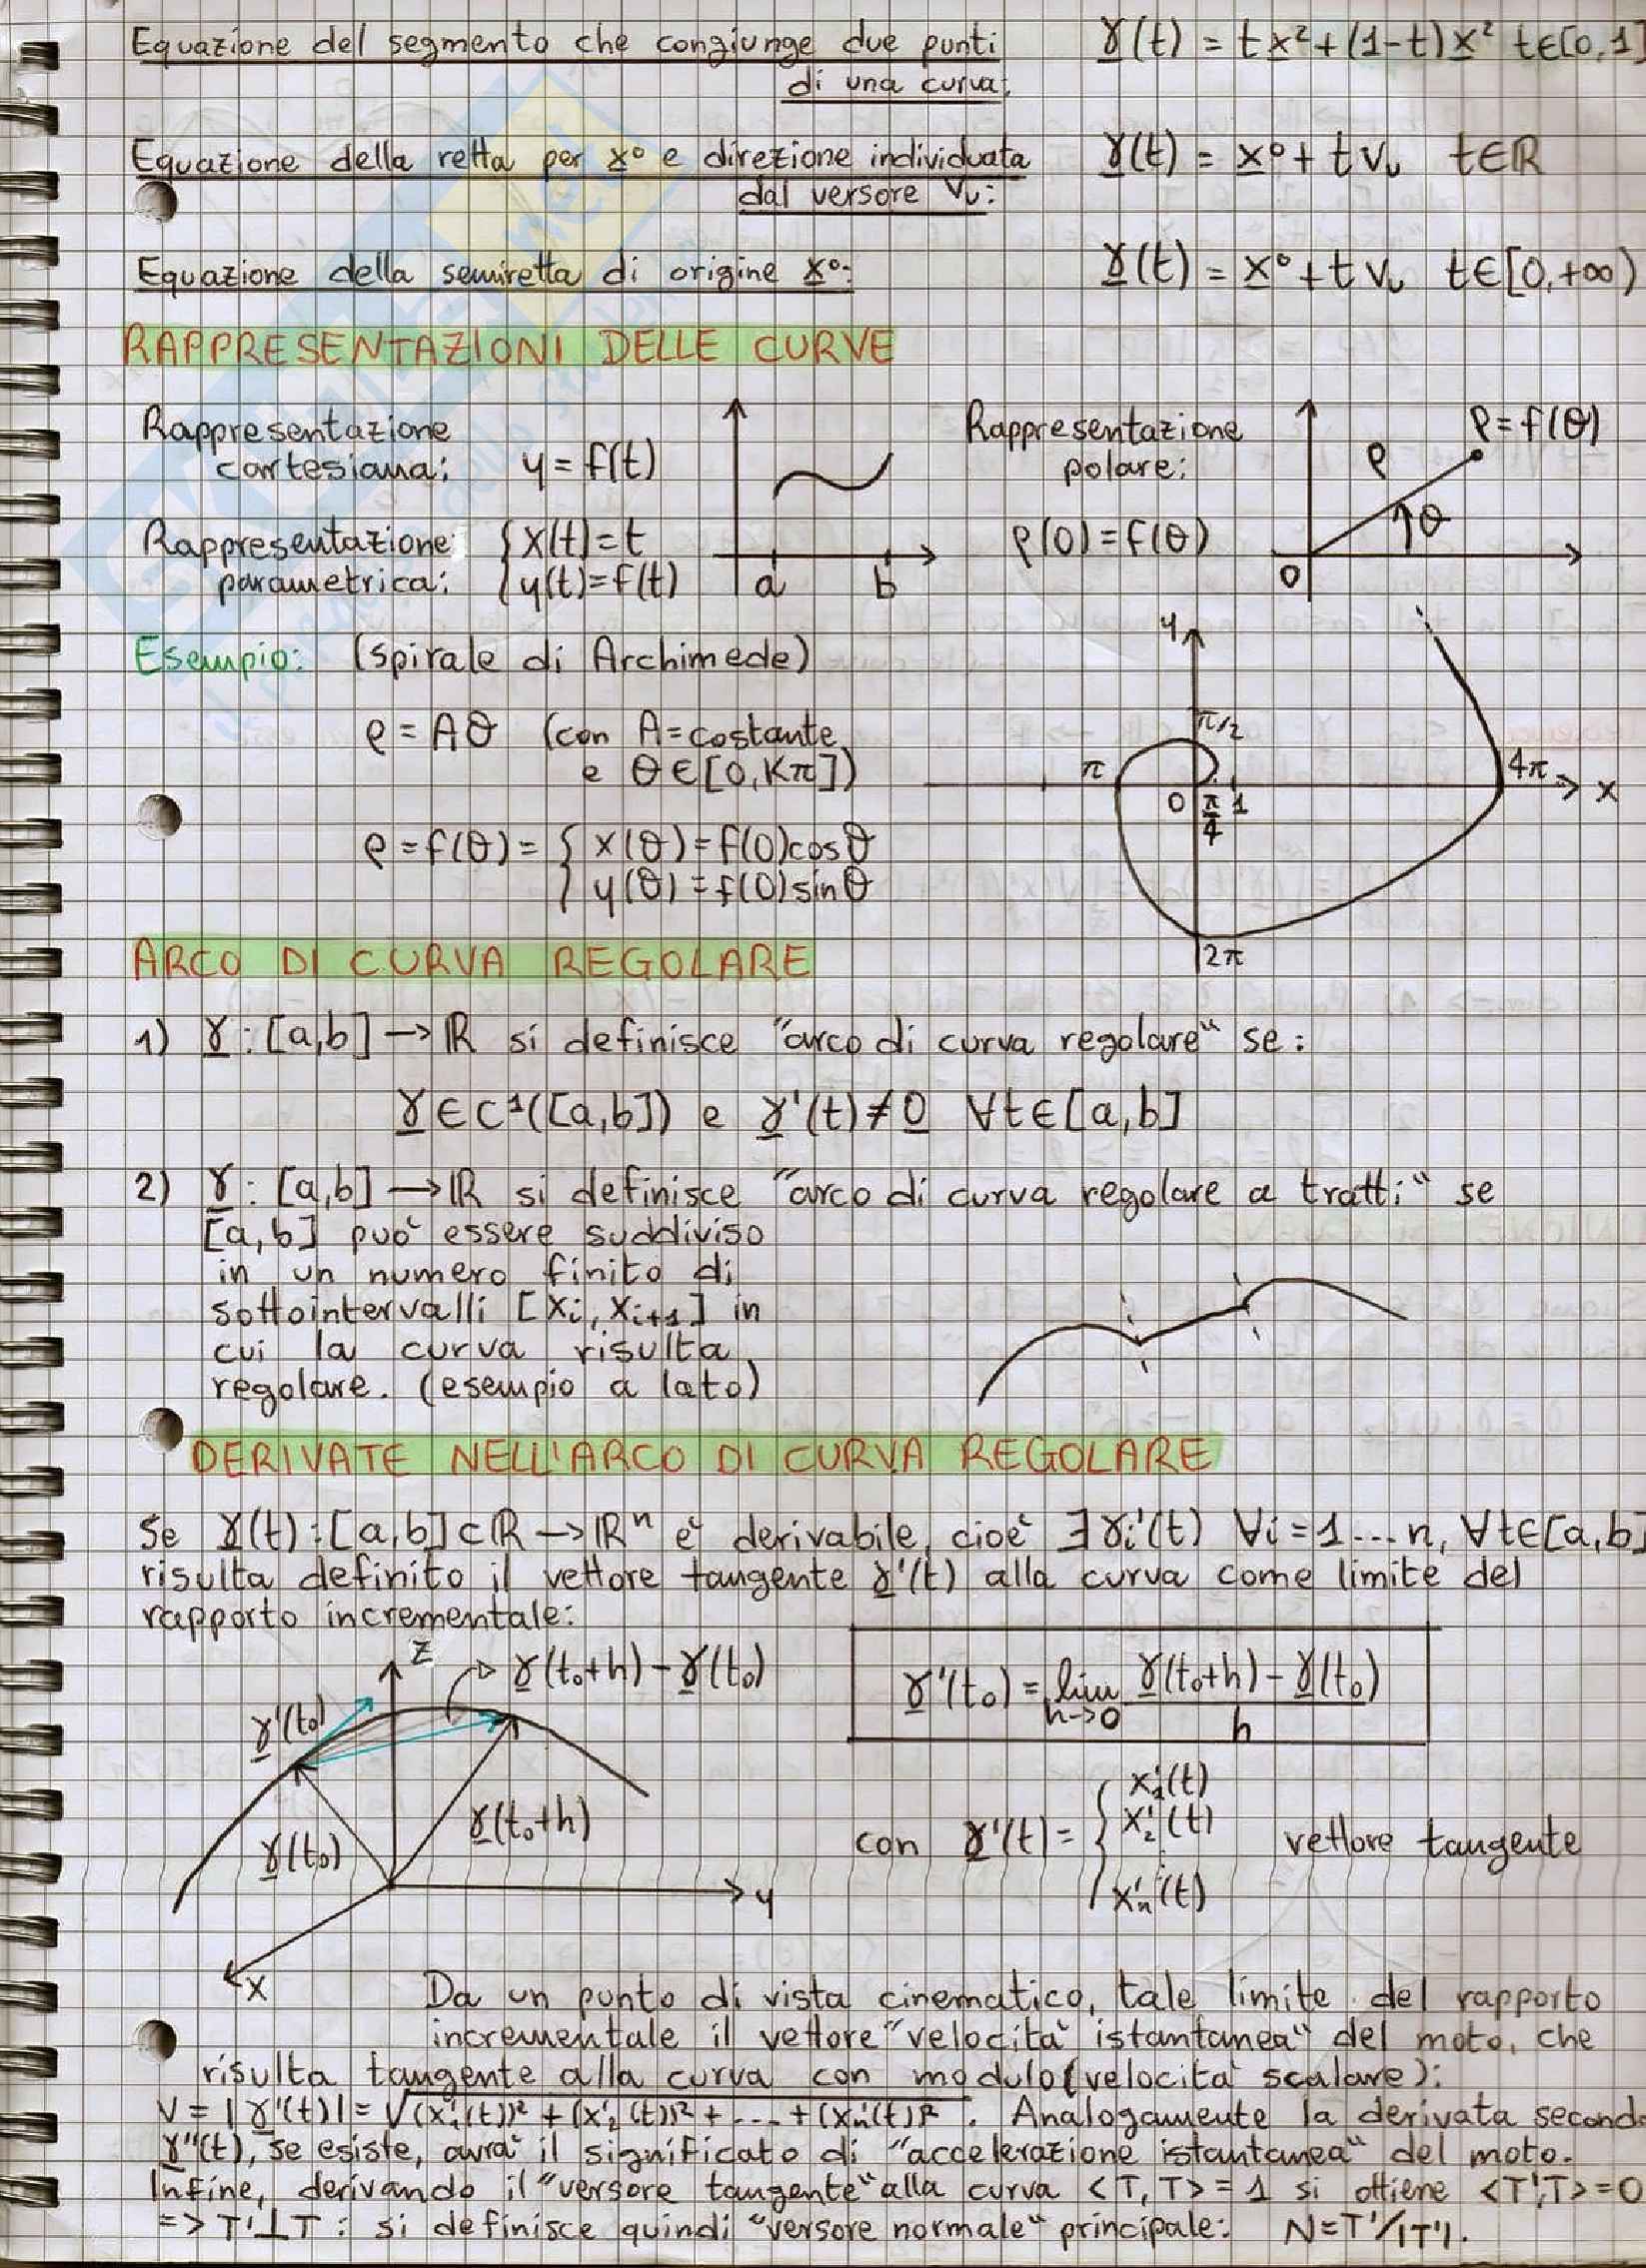 Equazione del segmento che congiunge due punti γ(t) = t x² + (1-t) x² t∈[0,1]
di una curva:
Equazione della retta per x⁰ e direzione individuata γ(t) = x⁰ + t Vᵥ t∈ℝ
dal versore Vᵥ:
Equazione della semiretta di origine x⁰: γ(t) = x⁰ + t Vᵥ t∈[0,+∞)
RAPPRESENTAZIONI DELLE CURVE
Rappresentazione
cartesiana: y = f(t)
Rappresentazione
parametrica: { x(t) = t
y(t) = f(t)
a b
Rappresentazione
polare:
ρ(0) = f(θ)
ρ = f(θ)
ρ
θ
0
Esempio: (spirale di Archimede)
ρ = Aθ (con A = costante
e θ∈[0, Kπ])
ρ = f(θ) = { x(θ) = f(0)cosθ
y(θ) = f(0)sinθ
y
π/2
π
4π
x
0 π/4 1
2π
ARCO DI CURVA REGOLARE
1) γ : [a,b] → ℝ si definisce "arco di curva regolare" se:
γ∈C¹([a,b]) e γ'(t) ≠ 0 ∀t∈[a,b]
2) γ : [a,b] → ℝ si definisce "arco di curva regolare a tratti" se
[a,b] può essere suddiviso
in un numero finito di
sottointervalli [xᵢ, xᵢ₊₁] in
cui la curva risulta
regolare. (esempio a lato)
DERIVATE NELL'ARCO DI CURVA REGOLARE
Se γ(t) : [a,b]⊂ℝ → ℝⁿ è derivabile, cioè ∃γᵢ'(t) ∀i = 1...n, ∀t∈[a,b]
risulta definito il vettore tangente γ'(t) alla curva come limite del
rapporto incrementale:
z
γ(t₀+h) - γ(t₀)
γ'(t₀)
γ(t₀)
γ(t₀+h)
y
x
γ'(t₀) = lim h→0 γ(t₀+h) - γ(t₀) / h
con γ'(t) = { x₁'(t)
x₂'(t)
⋮
xₙ'(t)
vettore tangente
Da un punto di vista cinematico, tale limite del rapporto
incrementale il vettore "velocità istantanea" del moto, che
risulta tangente alla curva con modulo (velocità scalare):
V = |γ'(t)| = √(x₁'(t))² + (x₂'(t))² + ... + (xₙ'(t))². Analogamente la derivata second
γ''(t), se esiste, avrà il significato di "accelerazione istantanea" del moto.
Infine, derivando il "versore tangente" alla curva <T, T> = 1 si ottiene <T', T> = 0
=> T'⊥T : si definisce quindi "versore normale" principale: N = T'/|T'|.